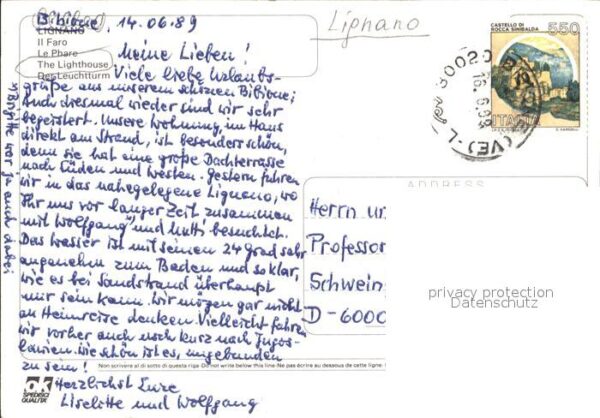 Bibione, 14.06.89
LIGNANO
Il Faro
Le Phare
The Lighthouse
Der Leuchtturm
Meine Lieben!
Viele liebe Urlaubs-
grüße aus unserem schönen Bibione;
Auch diesmal wieder sind wir sehr
begeistert. Unsere Wohnung, im Haus
direkt am Strand, ist besonders schön,
denn sie hat eine große Dachterrasse
nach Süden und Westen. Gestern fuhren
wir in das nahegelegene Lignano, wo
Ihr uns vor langer Zeit zusammen
mit Wolfgang und Matti besuchtet.
Das Wasser ist mit seinen 24 Grad sehr
angenehm zum Baden und so klar,
wie es bei Sandstrand überhaupt
nur sein kann. Wir mögen gar nicht
an Heimreise denken. Vielleicht fahren
wir vorher auch noch kurz nach Jugos-
lawien. Wie schön ist es, ungebunden
zu sein!
Herzlichst Eure
Liselitte und Wolfgang
Brigitte war ja auch dabei
Non scrivere al di sotto di questa riga · Do not write below this line · Ne pas écrire au dessous de cette ligne
ok
SPEDIRCI
QUALITA'
Lignano
CASTELLO DI
ROCCA SINIBALDA
550
ITALIA
30020
16.6.89
(VE)
ADDRESS
Herrn un
Professor
Schwein
D-6000
privacy protection
Datenschutz